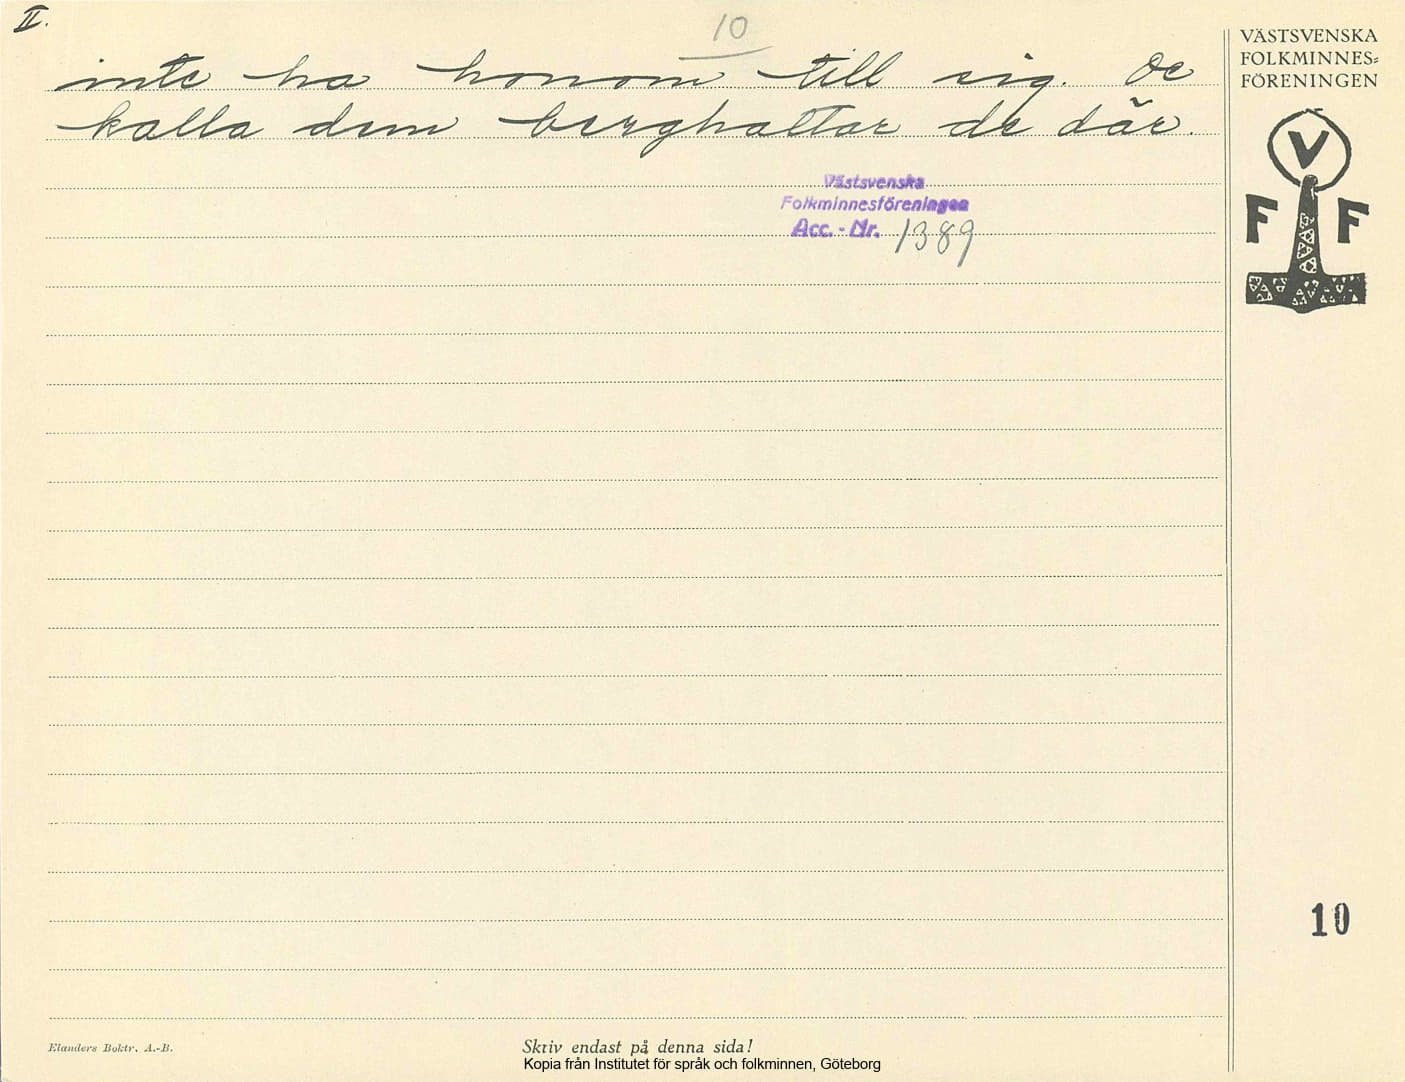 II.
10
inte ha honom till sig. De
kalla dem berghattar de där.
Västsvenska
Folkminnesföreningen
Acc. - Nr. 1389
VÄSTSVENSKA
FOLKMINNES=
FÖRENINGEN
V
F F
10
Elanders Boktr. A.-B.
Skriv endast på denna sida!
Kopia från Institutet för språk och folkminnen, Göteborg